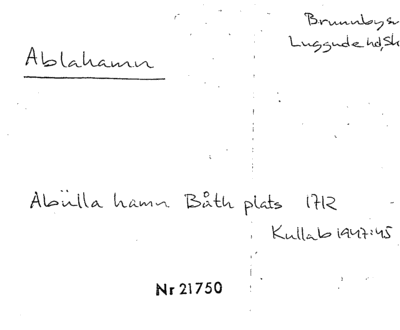 Brunnby sn
Luggude hd, Sk
Ablahamn
Abülla hamn Båth plats 1712
Kullab 1947:45
Nr 21750